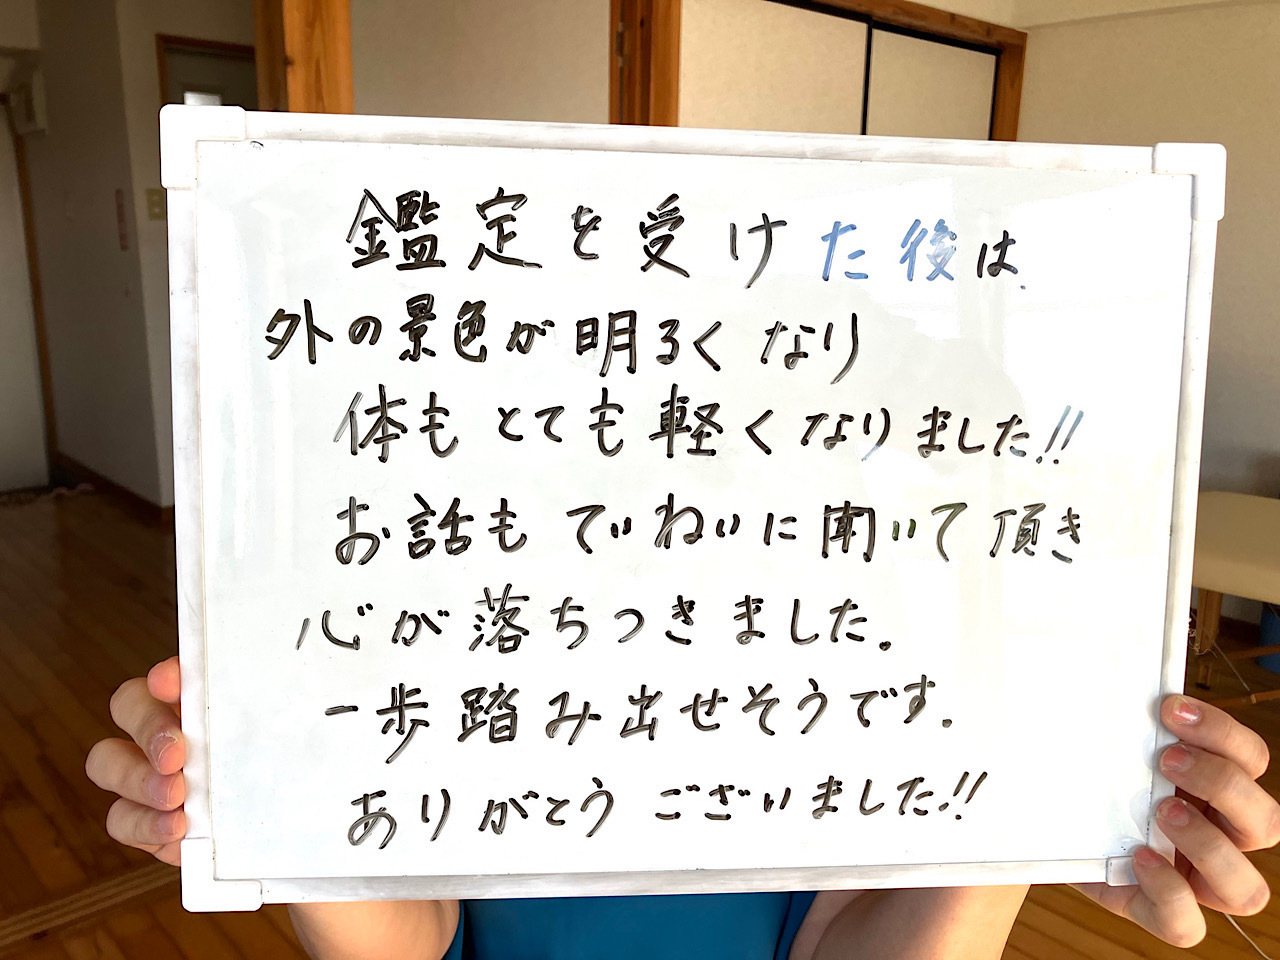 鑑定を受けた後は、
外の景色が明るくなり
体もとても軽くなりました!!
お話もていねいに聞いて頂き
心が落ちつきました。
一歩踏み出せそうです。
ありがとうございました!!